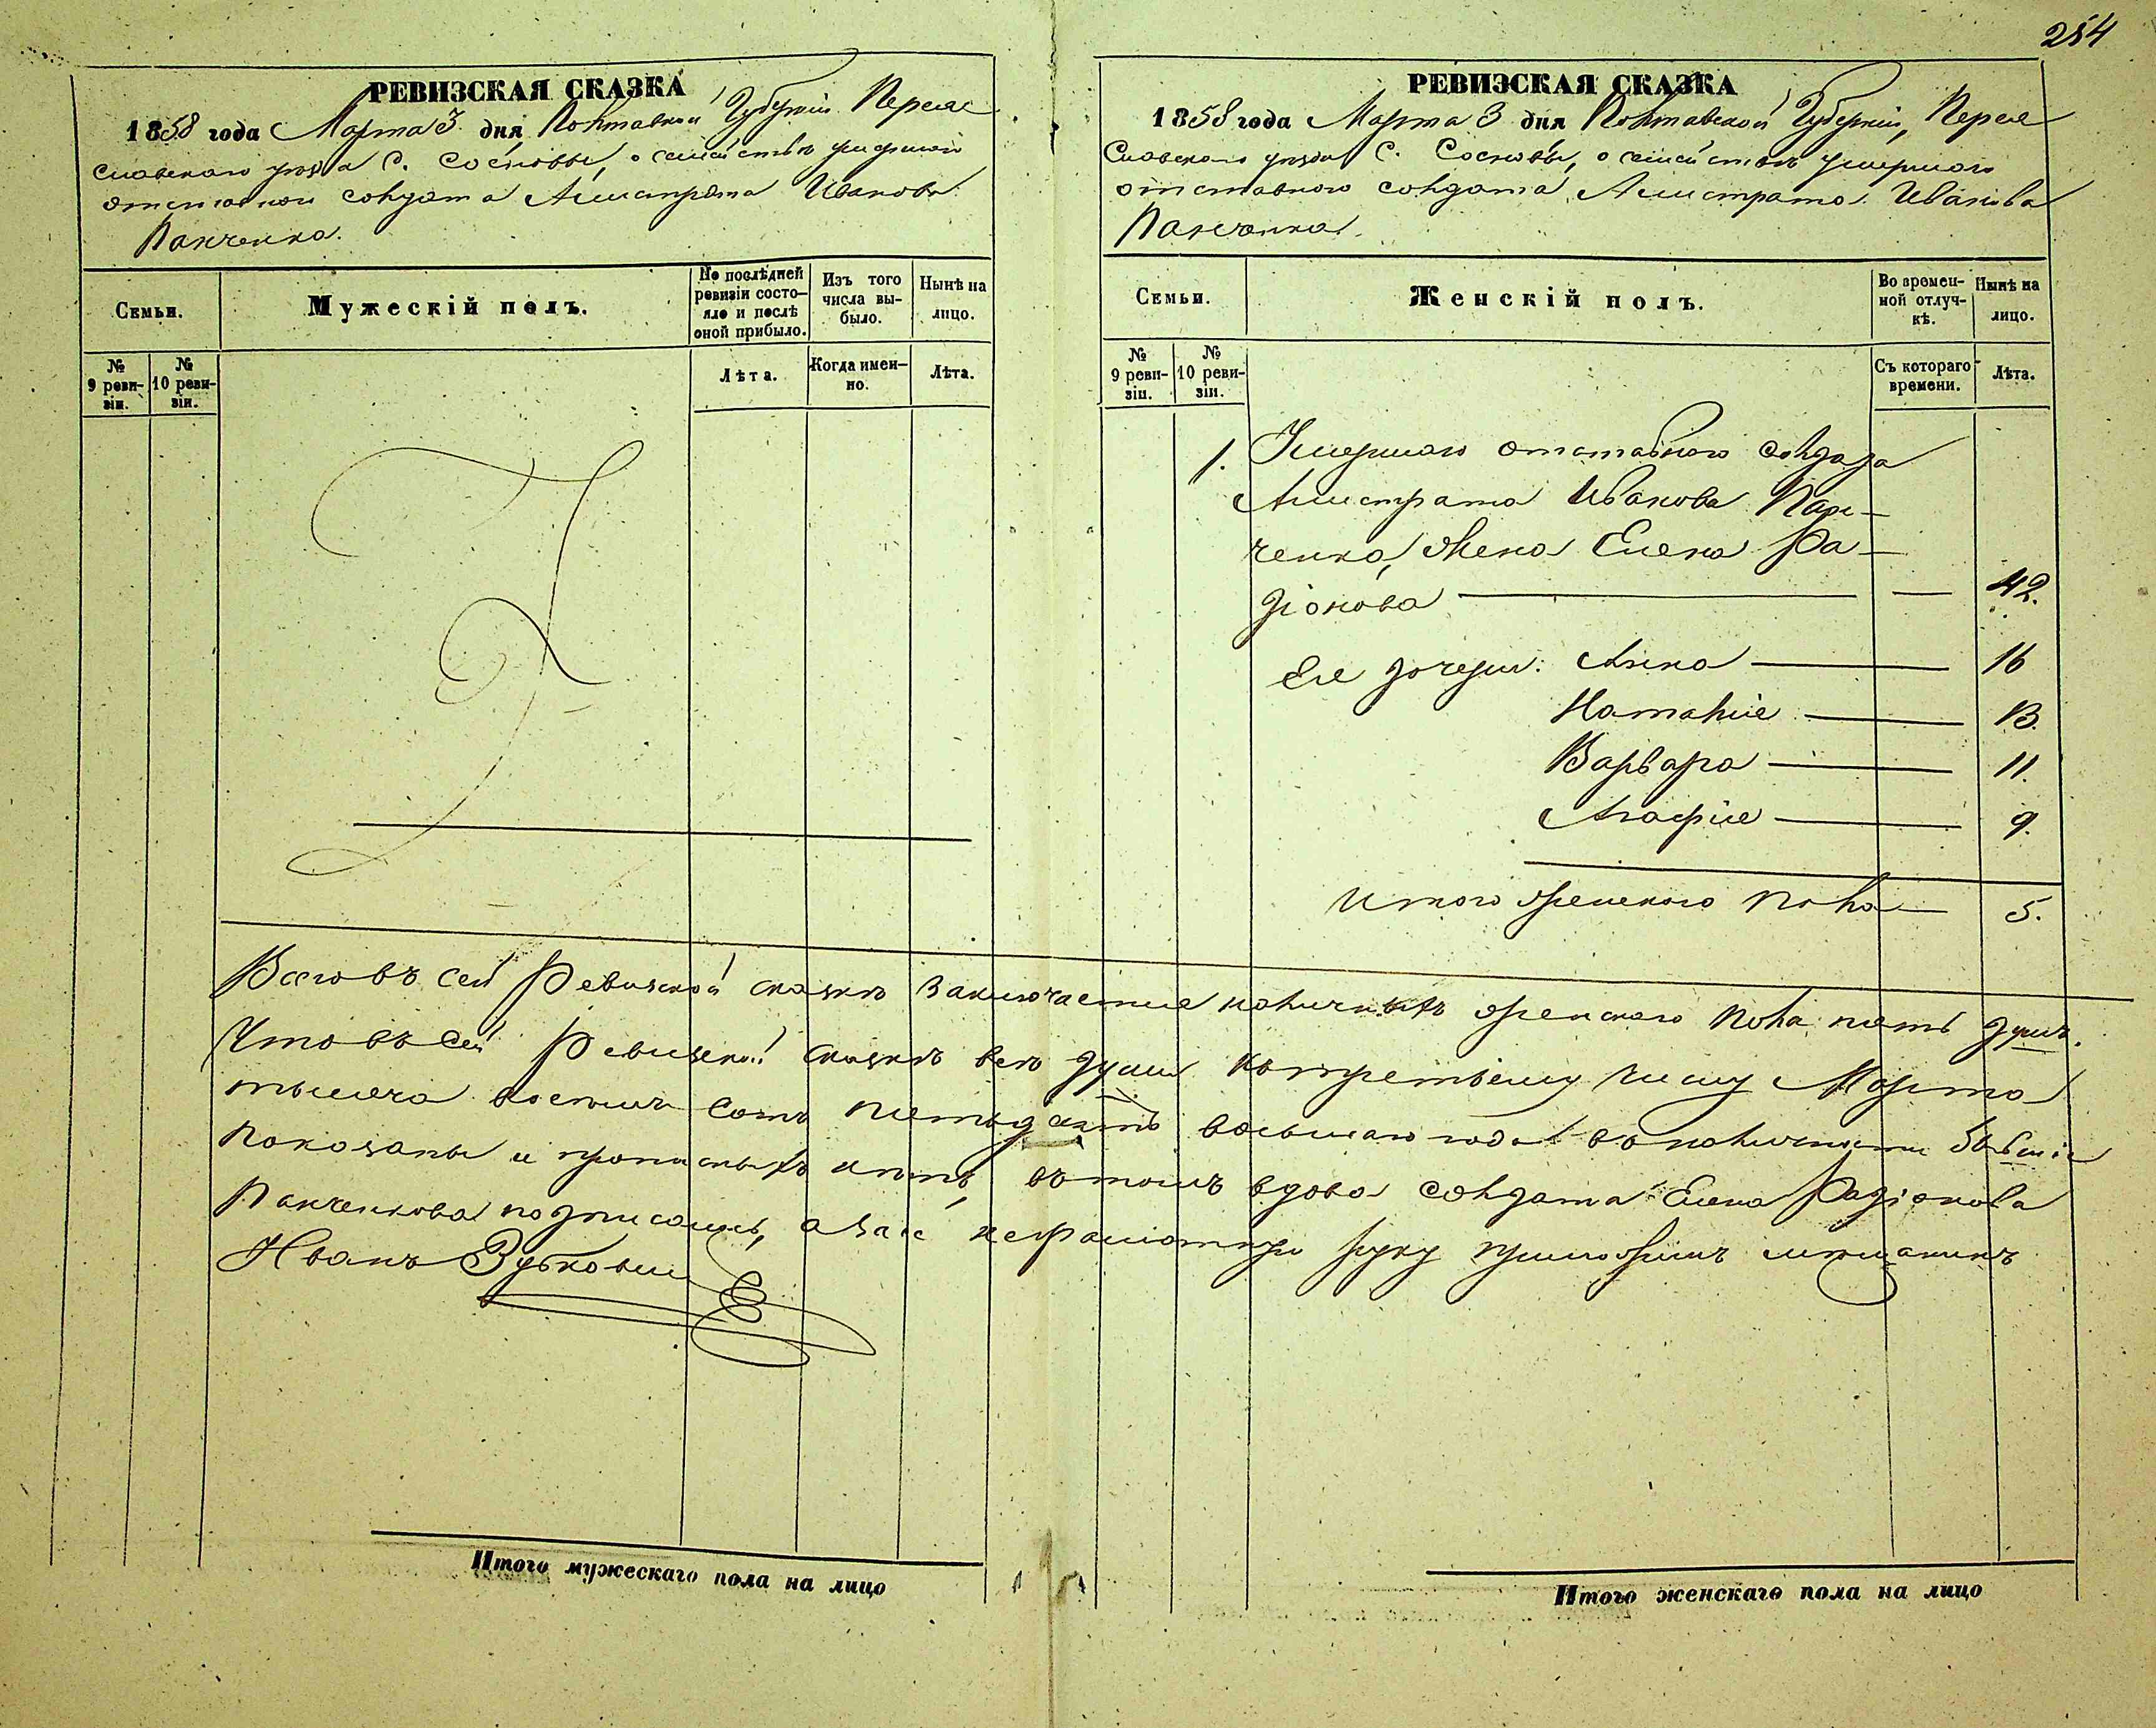 254
РЕВИЗСКАЯ СКАЗКА
1858 года Марта 3 дня Полтавской Губерніи Переяс
славскаго уезда С. Сосновы, о семействѣ умершаго
отставного солдата Алистрата Иванова
Панченка.
Семьи.
Мужескій полъ.
По послѣдней
ревизіи состо-
яло и послѣ
оной прибыло.
Изъ того
числа вы-
было.
Нынѣ на
лицо.
№
9 реви-
зіи.
№
10 реви-
зіи.
Лѣта.
Когда имен-
но.
Лѣта.
РЕВИЗСКАЯ СКАЗКА
1858 года Марта 3 дня Полтавской Губерніи, Перея
славскаго уезда С. Сосновы, о семействѣ умершаго
отставного солдата Алистрата Иванова
Панченка.
Семьи.
Женскій полъ.
Во времен-
ной отлуч-
кѣ.
Нынѣ на
лицо.
№
9 реви-
зіи.
№
10 реви-
зіи.
Съ котораго
времени.
Лѣта.
1. Умершаго отставного солдата
Алистрата Иванова Пан-
ченка, жена Елена Ра-
діонова — 42.
Ея дочери: Анна — 16
Наталія — 13.
Варвара — 11.
Агафія — 9.
Итого женского пола — 5.
Всего въ сей Ревизской сказкѣ заключается наличныхъ женского пола пять душъ.
Что въ сей Ревизской сказкѣ всѣ души къ третьему числу Марта
тысяча восемь сотъ пятьдесятъ восьмаго года въ наличности бывшіе
показаны и прописныхъ нѣтъ, въ томъ вдова солдата Елена Радіонова
Панченкова подписалась, а за ее неграмотную руку приложилъ мѣщанинъ
Иванъ
Итого мужескаго пола на лицо
Итого женскаго пола на лицо